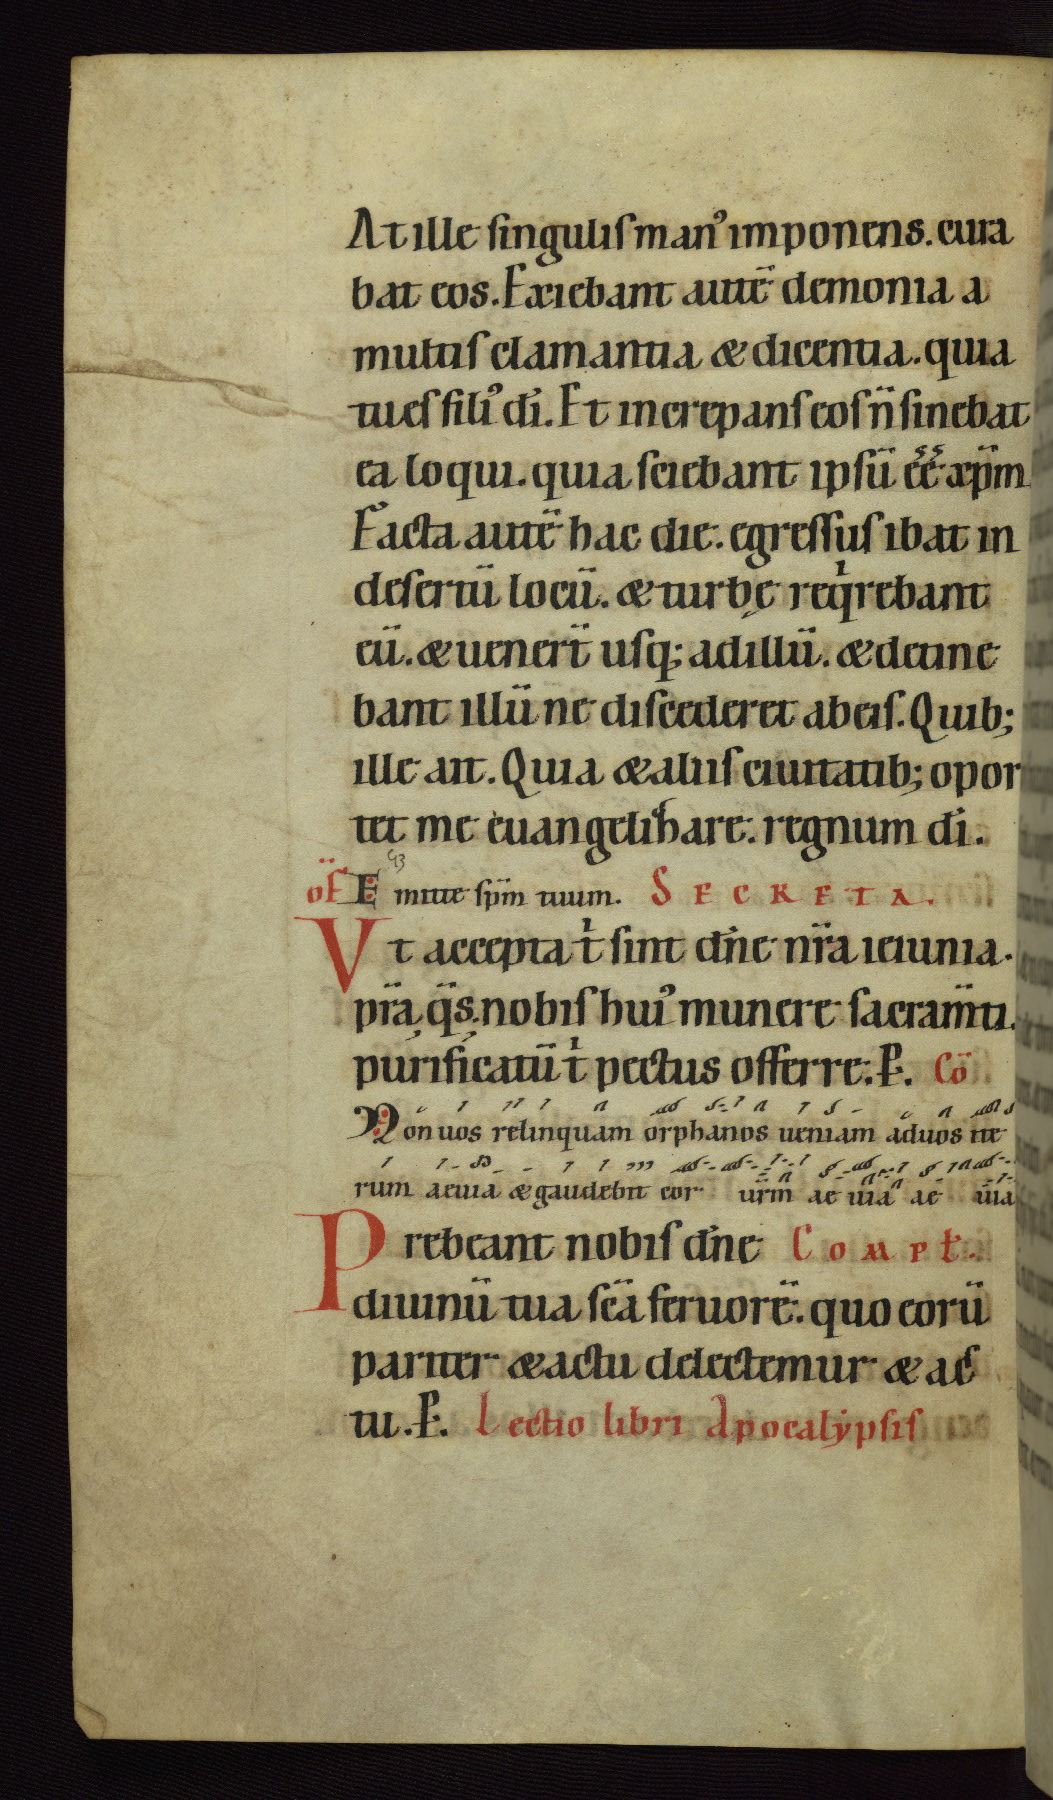 At ille singulis man᾿ imponens. cura
bat eos. Exiebant autē demonia a
multis clamantia & dicentia. quia
tu es fili᾿ dī. Et increpans eos n̄ sinebat
ea loqui. quia sciebant ipsū eē xp̄m
Facta autē hac die. egressus ibat in
desertū locū. & turbę reqͥrebant
eū. & uenert̄ usq; ad illū. & detine
bant illū ne discederet ab eis. Quib;
ille ait. Quia & aliis ciuitatib; opor
tet me euangelizare. regnum dī.
oF̄ Emitte sp̄m tuum. SECRETA.
Vt accepta tͥ sint dn̄e nr̄a ieiunia.
pr̄a q̄s. nobis hui᾿ munere sacram̄ti.
purificatū tͥ pectus offerre. P. Cō
Non uos relinquam orphanos ueniam ad uos ite
rum aeuia & gaudebit cor ur̄m ae uia ae uia
Prebeant nobis dn̄e Compł.
diuinū tua sc̄a feruorē. quo eorū
pariter & actu delectemur & ac
tu. P. Lectio libri Apocalẏpsis